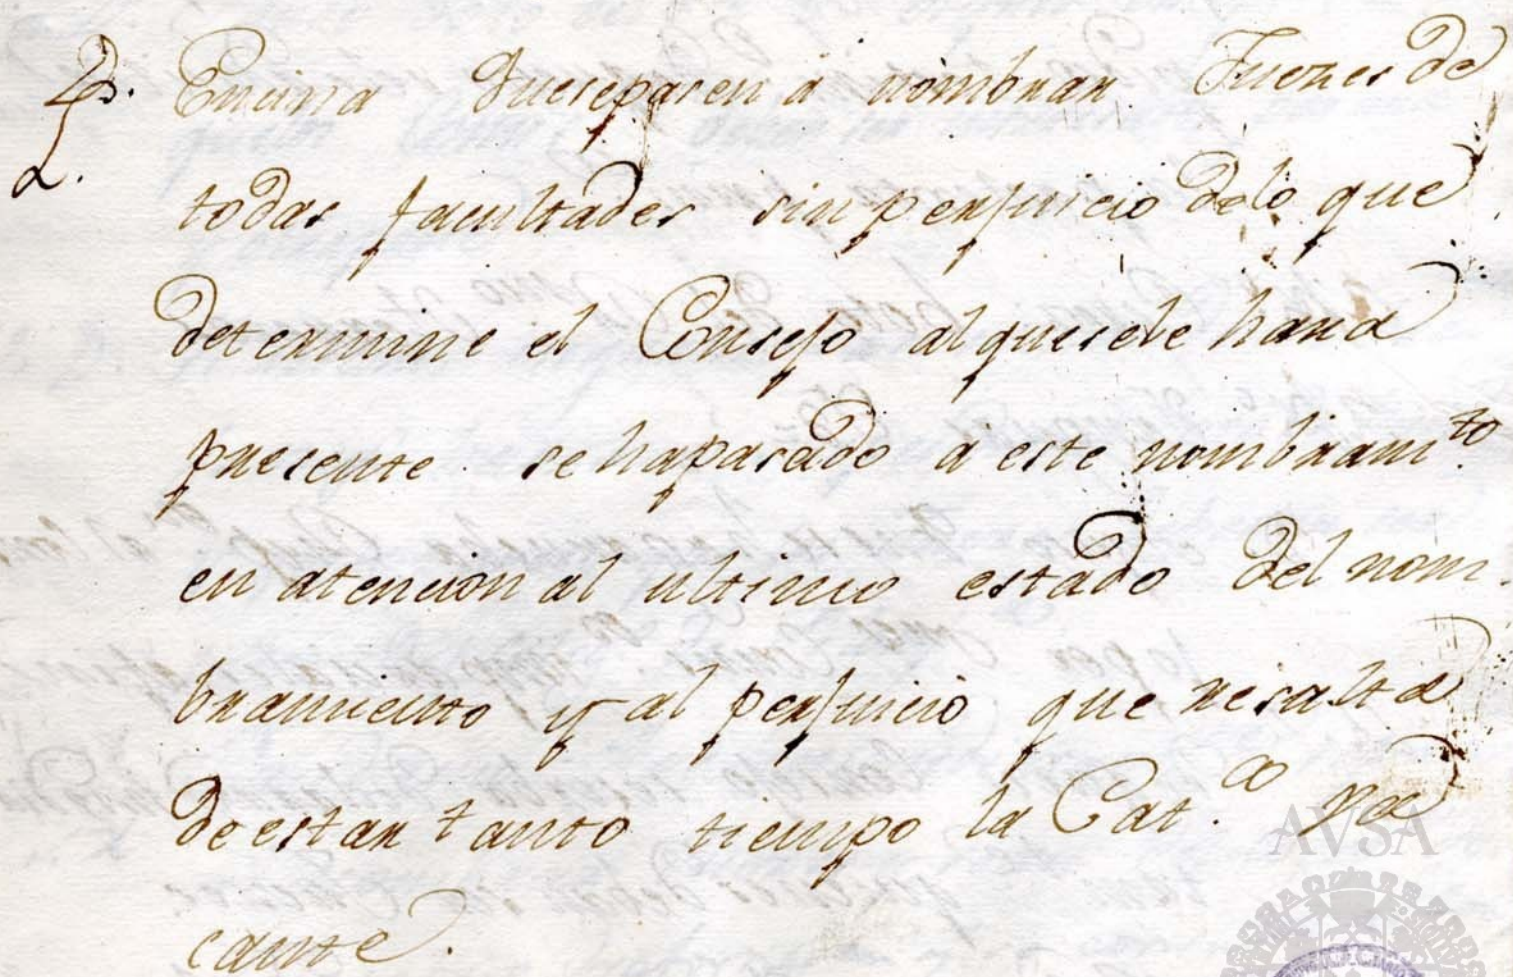 Dr. Encina Que se pasen á nombrar Juezes de
todas facultades sin perjuicio de lo que
determine el Consejo al que se le hará
presente se ha pasado á este nombramto.
en atencion al ultimo estado del nom-
bramiento y al perjuicio que resulta
de estar tanto tiempo la Cat.a va
cante.
AVSA